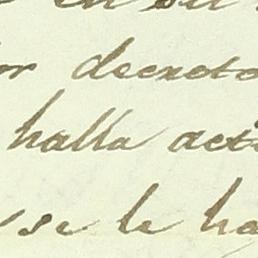 en su
or decreto
halla act
se le ha